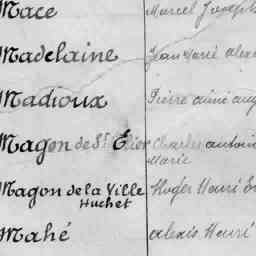 Mace Marcel Joseph
Madelaine Jean Marie alexi
Madioux Pierre aimé aug
Magon de St Elier Charles antoine
Marie
Magon de la Ville Roger Henri
Huchet
Mahé alexis Henri